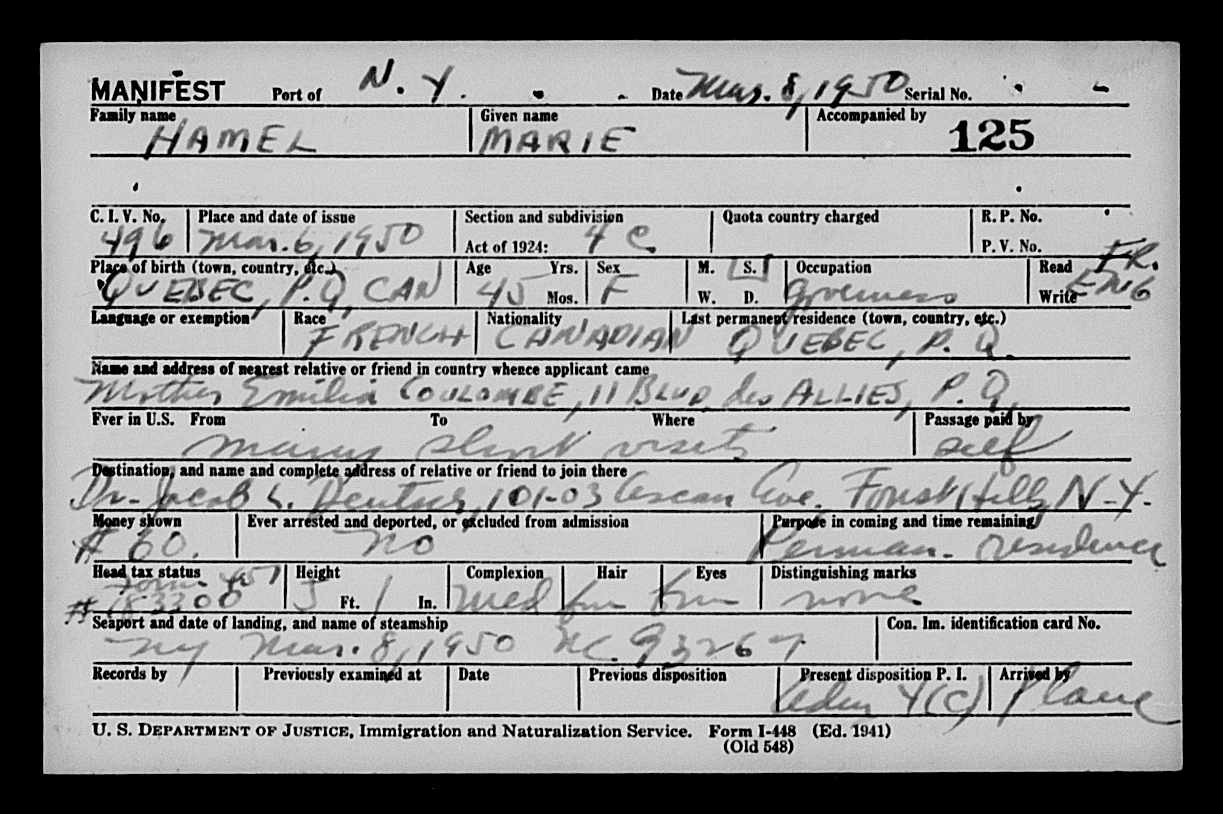 MANIFEST Port of N. Y. Date Mar. 8, 1950 Serial No.
Family name Given name Accompanied by
HAMEL MARIE 125
C. I. V. No. Place and date of issue Section and subdivision Quota country charged R. P. No.
496 Mar. 6, 1950 Act of 1924: 4 C P. V. No.
Place of birth (town, country, etc.) Age Yrs. Sex M. S. Occupation Read FR.
QUEBEC, P.Q, CAN 45 Mos. F W. D. Governess Write ENG
Language or exemption Race Nationality Last permanent residence (town, country, etc.)
FRENCH CANADIAN QUEBEC, P. Q.
Name and address of nearest relative or friend in country whence applicant came
Mother Emilia COULOMBE, 11 BLVD, des ALLIES, P. Q.
Ever in U.S. From To Where Passage paid by
many short visits self
Destination, and name and complete address of relative or friend to join there
Dr. Jacob L. 101-03 Ascan Ave. Forest Hills, N-Y.
Money shown Ever arrested and deported, or excluded from admission Purpose in coming and time remaining
# 60. no Perman. residence
Head tax status Height Complexion Hair Eyes Distinguishing marks
Form 457
# 183300 5 Ft. 1 In. Med brn brn none
Seaport and date of landing, and name of steamship Con. Im. identification card No.
NY Mar. 8, 1950 NC. 93267
Records by Previously examined at Date Previous disposition Present disposition P. I. Arrived by
4(c) Plane
U. S. DEPARTMENT OF JUSTICE, Immigration and Naturalization Service. Form I-448 (Ed. 1941)
(Old 548)